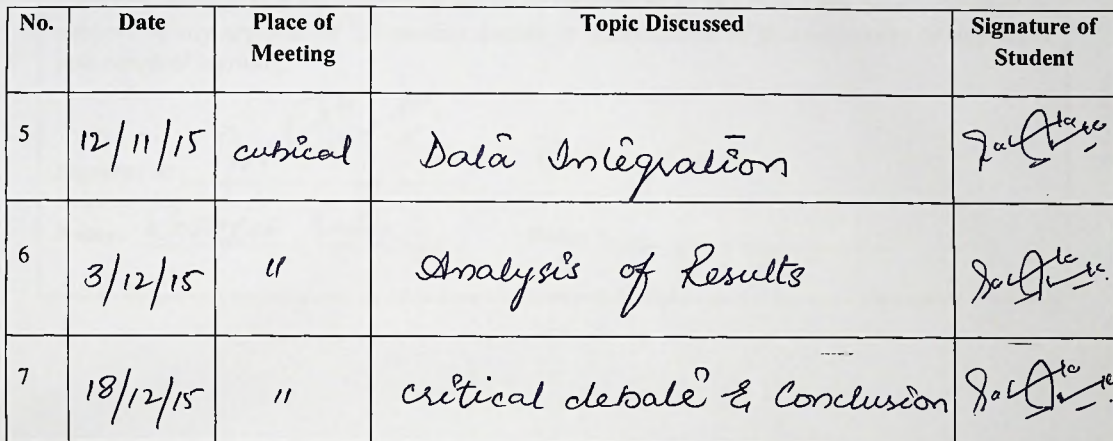 No. Date Place of Meeting Topic Discussed Signature of Student
5 12/11/15 cubical Data Integration
6 3/12/15 " Analysis of Results
7 18/12/15 " critical debate & Conclusion